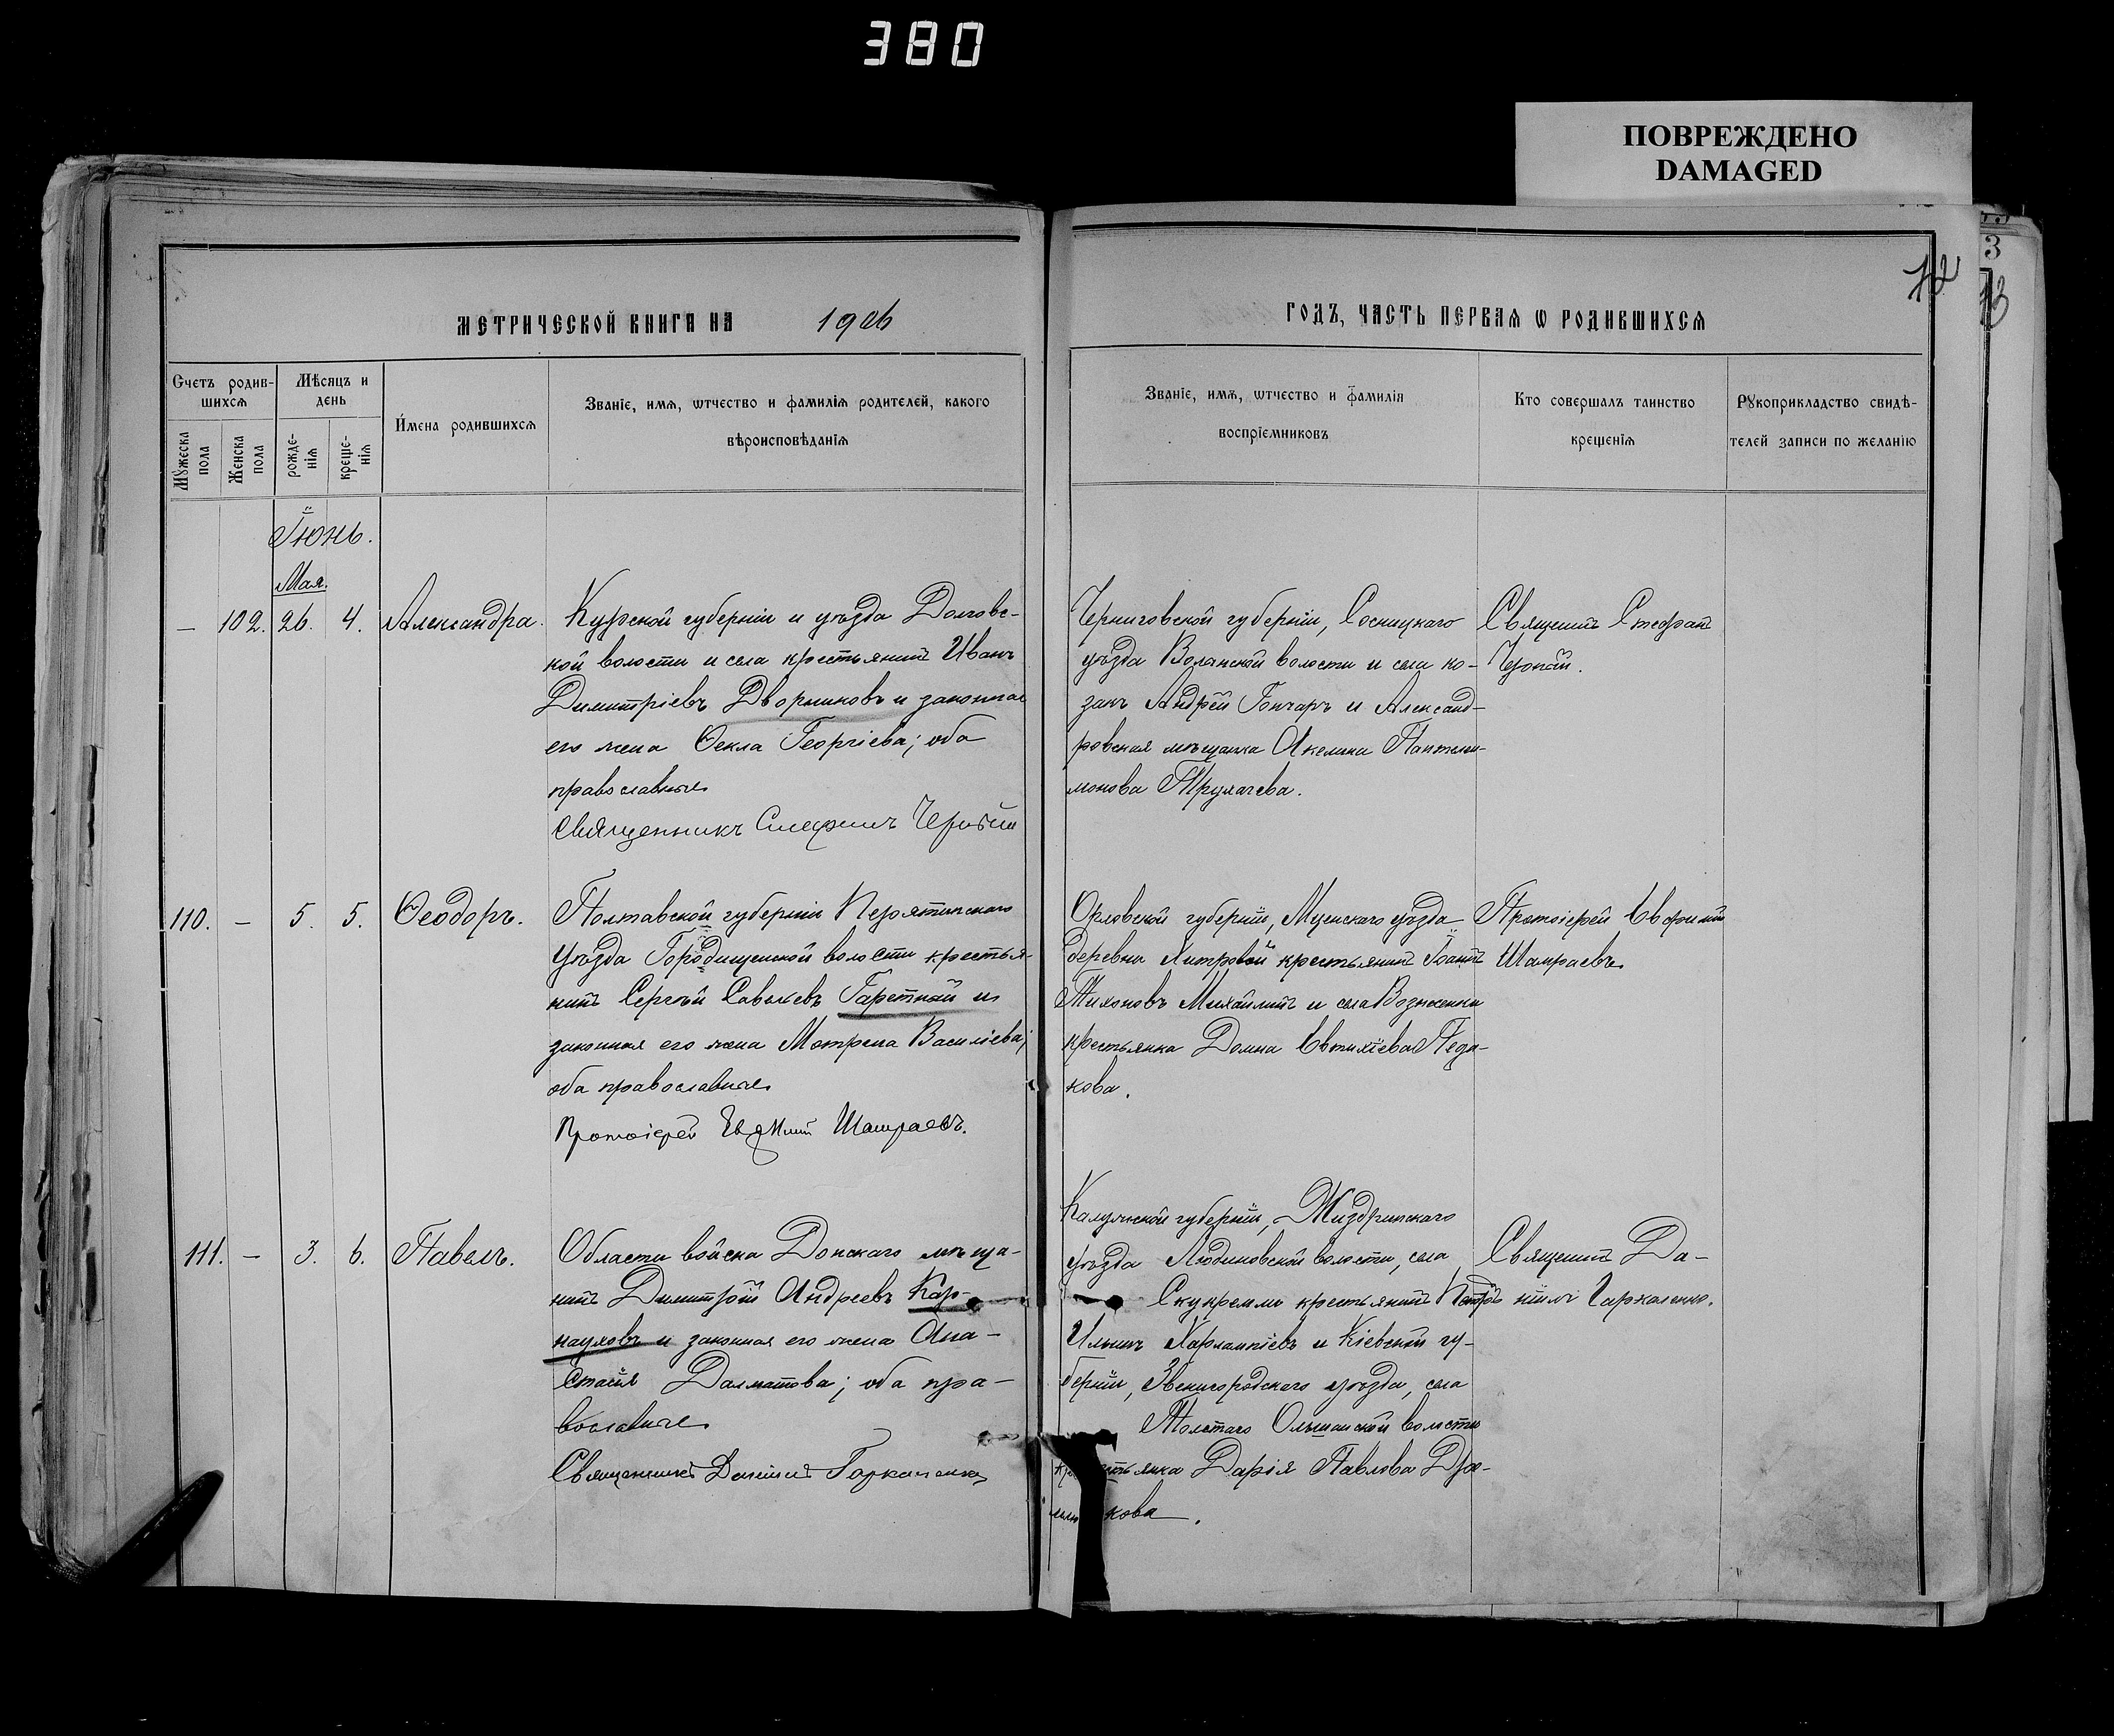 380
ПОВРЕЖДЕНО
DAMAGED
3
72
МЕТРИЧЕСКОЙ КНИГИ НА 1906
ГОДЪ, ЧАСТЬ ПЕРВАЯ Ѡ РОДИВШИХСЯ
Счетъ родив-
шихся
Мѣсяцъ и
день
Мужеска
пола
Женска
пола
рожде-
нія
креще-
нія
Имена родившихся
Званіе, имя, ѡтчество и фамилія родителей, какого
вѣроисповѣданія
Званіе, имя, ѡтчество и фамилія
воспріемниковъ
Кто совершалъ таинство
крещенія
Рукоприкладство свидѣ-
телей записи по желанію
Іюнь.
Мая.
— 102. 26. 4. Александра.
Курской губерніи и уѣзда Долговс-
кой волости и села крестьянинъ Иванъ
Димитріевъ Дворниковъ и законная
его жена Ѳекла Георгіева; оба
православные
Священникъ Стефанъ
Черниговской губерніи, Сосницкаго
уѣзда Волынской волости и села ко-
закъ Андрей Гончаръ и Александ-
ровская мѣщанка Акелина Пантелеи-
монова
Священникъ Стефанъ
110. — 5. 5. Ѳеодоръ.
Полтавской губерніи Пирятинскаго
уѣзда Городищенской волости крестья-
нинъ Сергѣй Савельевъ и
законная его жена Мотрона Василіева;
оба православные
Протоіерей Евѳимій Шамраевъ.
Орловской губерніи, Мценскаго уѣзда
деревни Хитровой крестьянинъ Іоаннъ
Тихоновъ Михайлинъ и села Вознесенки
крестьянка Домна Евтихіева
кова.
Протоіерей Евфимій
Шамраевъ
111. — 3. 6. Павелъ.
Области войска Донскаго мѣща-
нинъ Димитрій Андреевъ Кар-
науховъ и законная его жена Ана-
стасія Далматова; оба пра-
вославные
Священникъ Даніилъ Гаркаленко
Калужской губерніи, Жиздринскаго
уѣзда Людиновской волости, села
крестьянинъ Петръ
Ильинъ Харлампіевъ и Кіевской гу-
берніи, Звенигородскаго уѣзда, села
Толстаго Ольшанской волости
крестьянка Дарія Павлова
кова.
Священникъ Да-
ніилъ Гаркаленко.